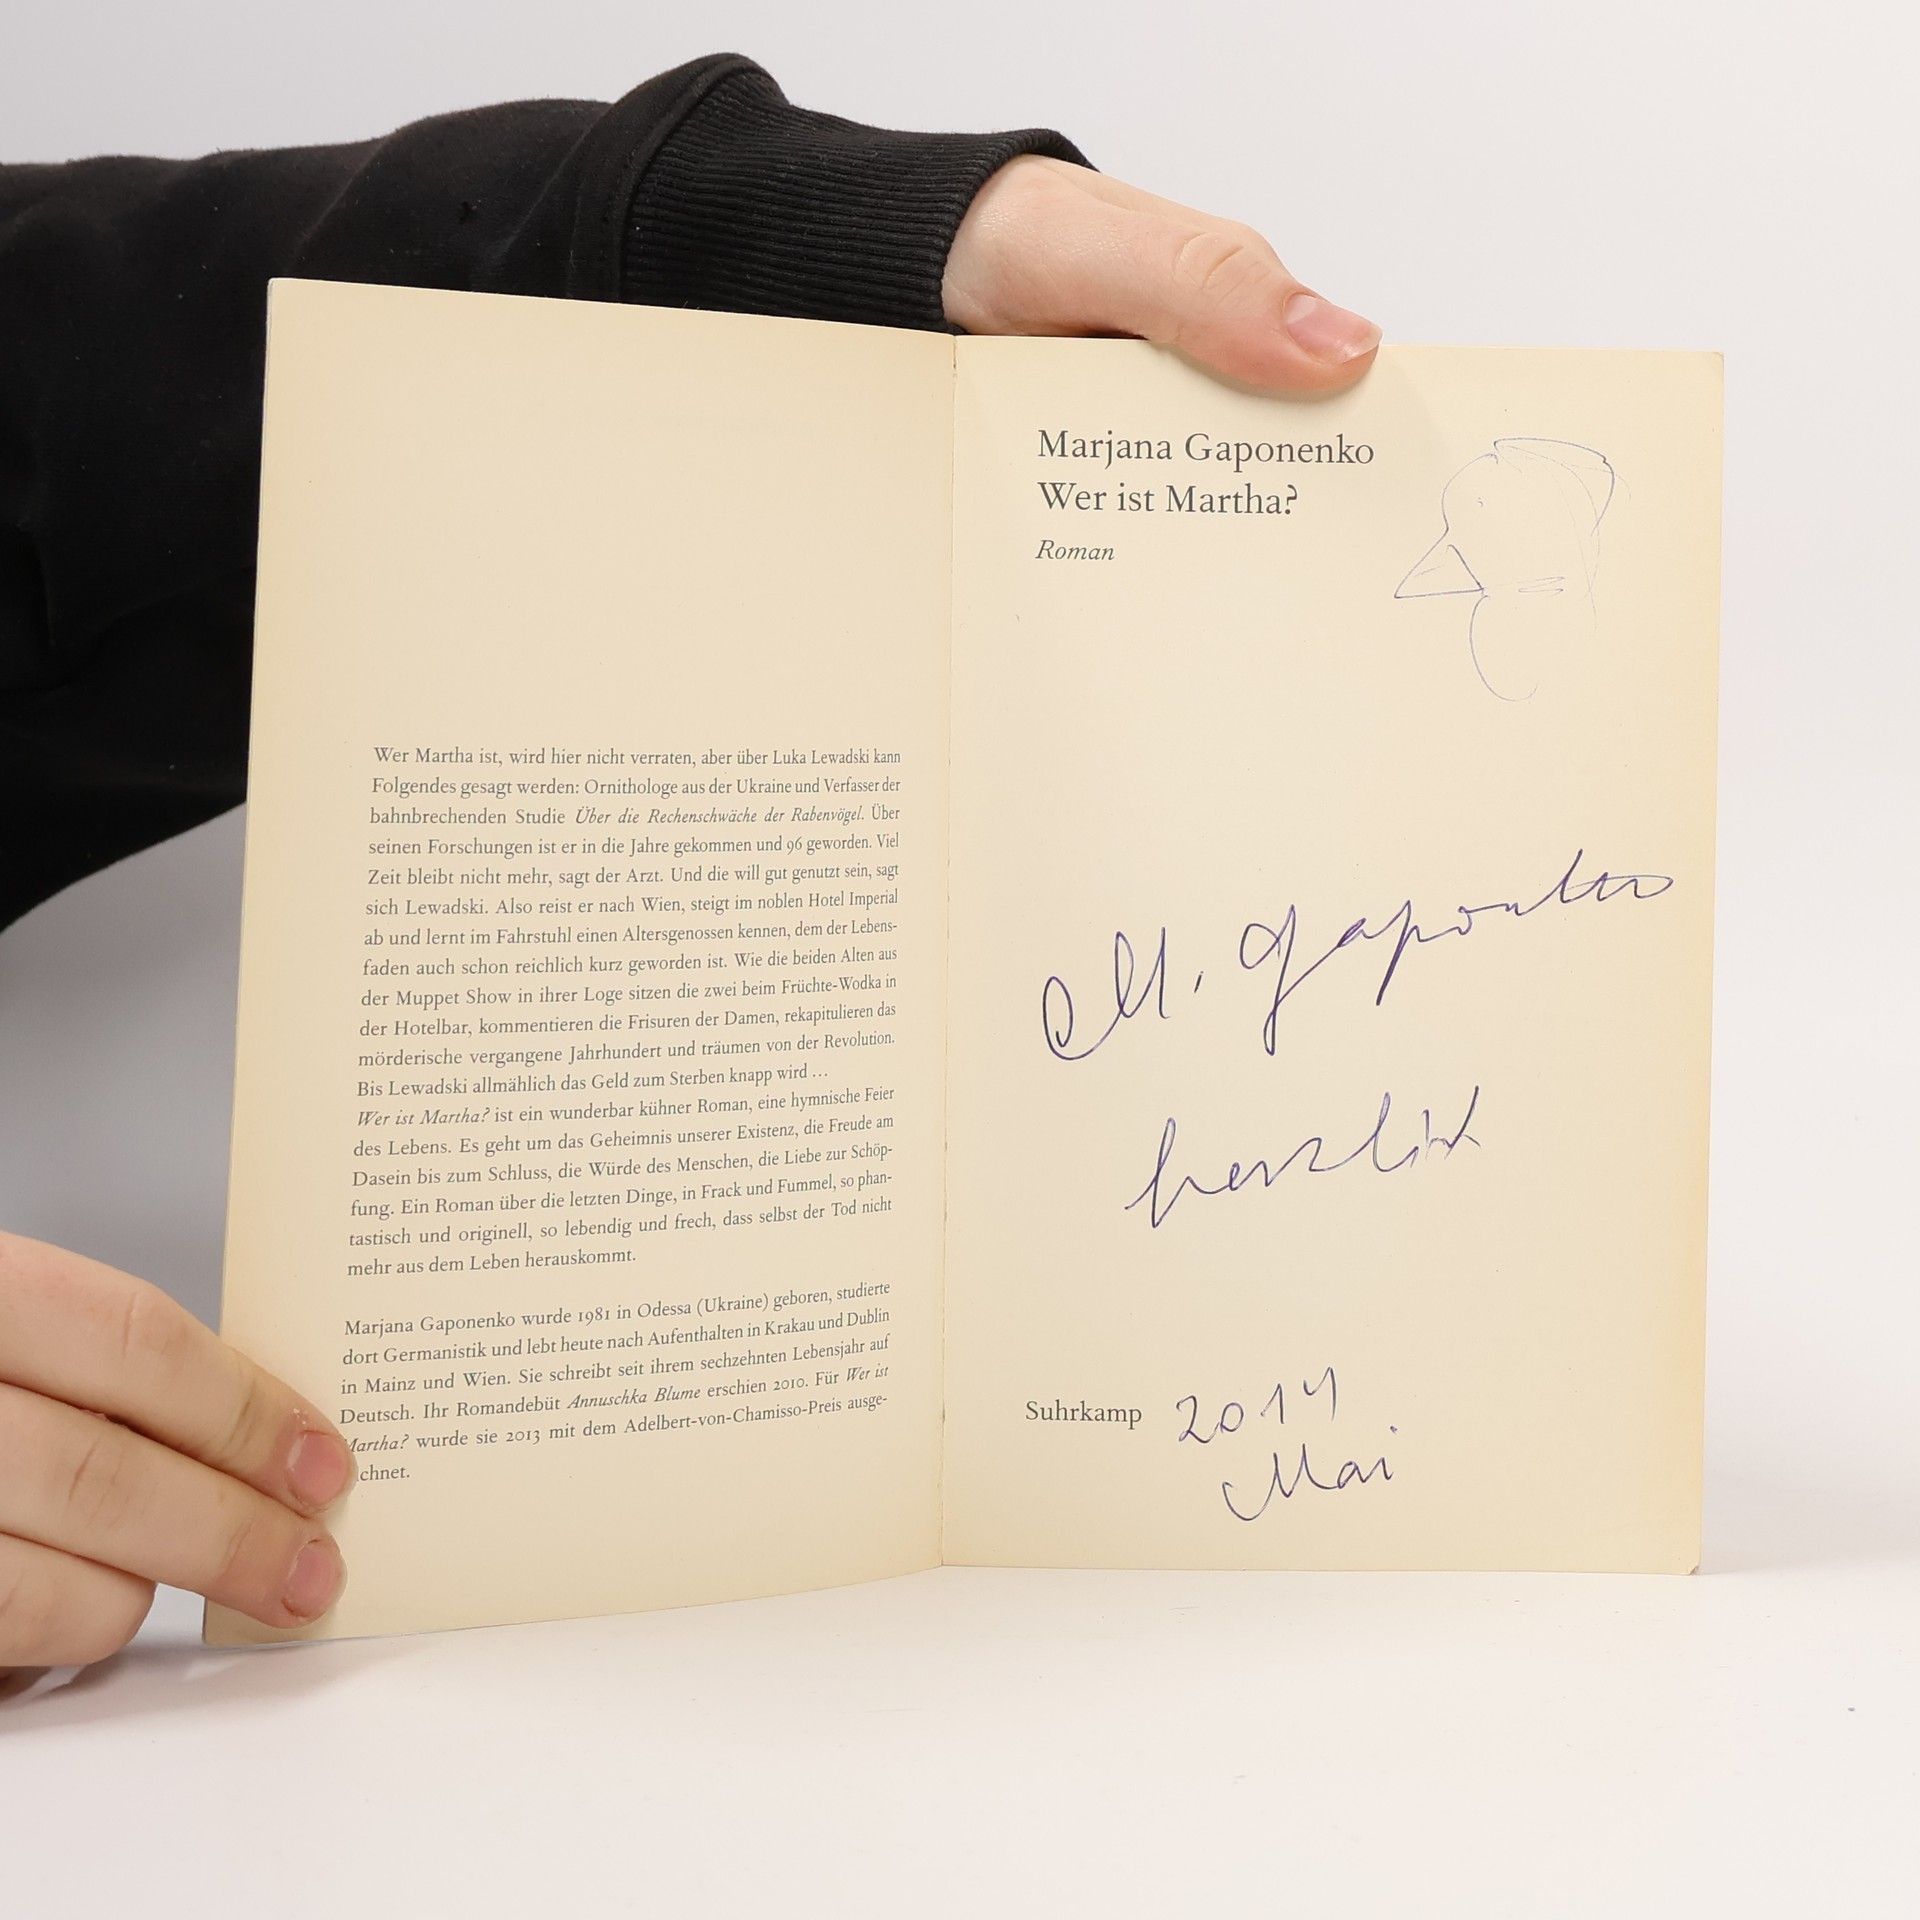 Wer Martha ist, wird hier nicht verraten, aber über Luka Lewadski kann
Folgendes gesagt werden: Ornithologe aus der Ukraine und Verfasser der
bahnbrechenden Studie Über die Rechenschwäche der Rabenvögel. Über
seinen Forschungen ist er in die Jahre gekommen und 96 geworden. Viel
Zeit bleibt nicht mehr, sagt der Arzt. Und die will gut genutzt sein, sagt
sich Lewadski. Also reist er nach Wien, steigt im noblen Hotel Imperial
ab und lernt im Fahrstuhl einen Altersgenossen kennen, dem der Lebens-
faden auch schon reichlich kurz geworden ist. Wie die beiden Alten aus
der Muppet Show in ihrer Loge sitzen die zwei beim Früchte-Wodka in
der Hotelbar, kommentieren die Frisuren der Damen, rekapitulieren das
mörderische vergangene Jahrhundert und träumen von der Revolution.
Bis Lewadski allmählich das Geld zum Sterben knapp wird ...
Wer ist Martha? ist ein wunderbar kühner Roman, eine hymnische Feier
des Lebens. Es geht um das Geheimnis unserer Existenz, die Freude am
Dasein bis zum Schluss, die Würde des Menschen, die Liebe zur Schöp-
fung. Ein Roman über die letzten Dinge, in Frack und Fummel, so phan-
tastisch und originell, so lebendig und frech, dass selbst der Tod nicht
mehr aus dem Leben herauskommt.
Marjana Gaponenko wurde 1981 in Odessa (Ukraine) geboren, studierte
dort Germanistik und lebt heute nach Aufenthalten in Krakau und Dublin
in Mainz und Wien. Sie schreibt seit ihrem sechzehnten Lebensjahr auf
Deutsch. Ihr Romandebüt Annuschka Blume erschien 2010. Für Wer ist
Martha? wurde sie 2013 mit dem Adelbert-von-Chamisso-Preis ausge-
ichnet.
Marjana Gaponenko
Wer ist Martha?
Roman
M. Gaponenko
herzlich
Suhrkamp 2014
Mai